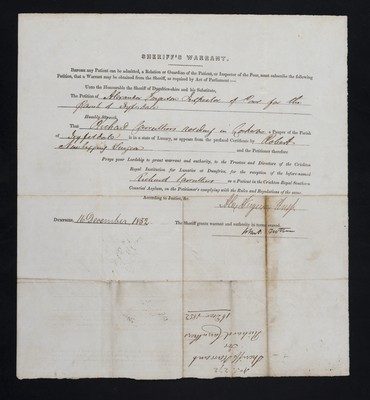 SHERIFF'S WARRANT.
BEFORE any Patient can be admitted, a Relation or Guardian of the Patient, or Inspector of the Poor, must subscribe the following
Petition, that a Warrant may be obtained from the Sheriff, as required by Act of Parliament:—
Unto the Honourable the Sheriff of Dumfries-shire and his Substitutes,
The Petition of Alexander Ferguson Inspector of Poor for the
Parish of
Humbly Sheweth,
That Richard Carruthers residing in a Pauper of the Parish
is in a state of Lunacy, as appears from the prefixed Certificate by Robert
Surgeon and the Petitioner therefore
Prays your Lordship to grant warrant and authority, to the Trustees and Directors of the Crichton
Royal Institution for Lunatics at Dumfries, for the reception of the before-named
Richard Carruthers as a Patient in the Crichton Royal Southern
Counties Asylum, on the Petitioner's complying with the Rules and Regulations of the same.
According to Justice, &c.
Alex Ferguson Insp.
DUMFRIES, 16 December 1852 The Sheriff grants warrant and authority in terms craved.
Sheriff's Warrant
for
Richard Carruthers
16 Decr 1852